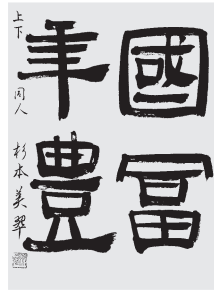 國富
年豐
上下 同人 杉本美翠